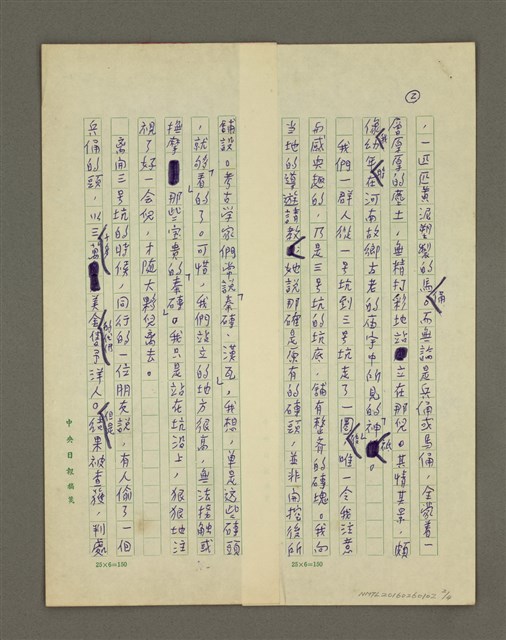 ②
，一匹匹黃泥塑製的馬俑。而無論是兵俑或馬俑，全蒙着一
層厚厚的塵土，無精打彩地站立在那兒。其情其景，頗
像幼年在河南故鄉古老的庙宇中所見的神祇。
我們一群人從一号坑到三号坑走了一圈後，唯一令我注意
而感兴趣的，乃是三号坑的坑底，舖有整齐的磚塊。我向
当地的導遊請教，她說那確是原有的磚頭，並非開挖後所
舖設。考古学家們常說「秦磚、漢瓦」，我想，單是这些磚頭
，就「够看的」了。可惜，我們站立的地方很高，無法接触或
撫摩那些宝貴的「秦磚」。我只是站在坑沿上，狠狠地注
視了好一会兒，才随大夥兒离去。
离開三号坑的時候，同行的一位朋友說，有人偷了一個
兵俑的頭，以三萬美金的代價售予洋人。但是後果被查獲，判處
中央日報稿箋
25×6=150
25×6=150
NMTL20160260102 2/4